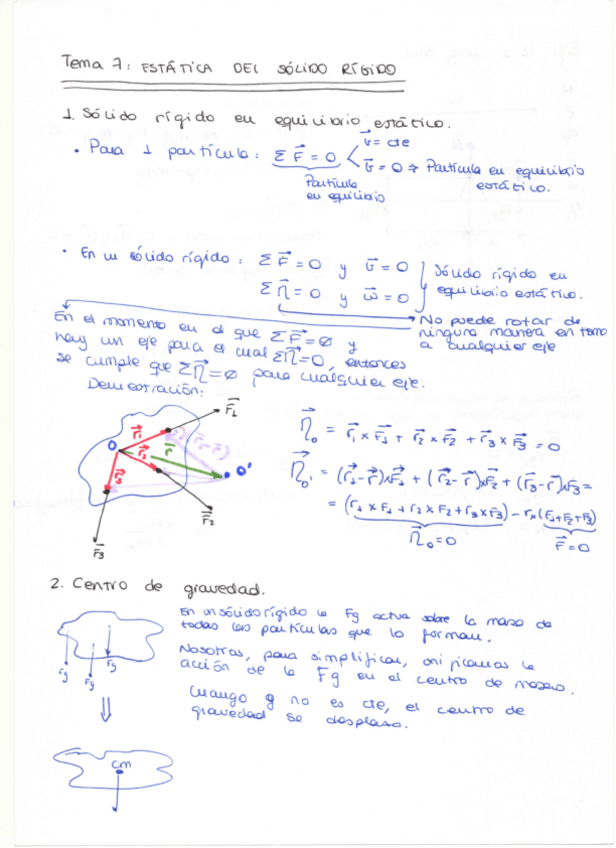 Tema 7: ESTÁTICA DEL SÓLIDO RÍGIDO
1. Sólido rígido en equilibrio estático.
• Para 1 partícula: Σ F⃗ = 0
v⃗ = cte
v⃗ = 0 ⇒ Partícula en equilibrio estático.
Partícula en equilibrio
• En un sólido rígido: Σ F⃗ = 0 y v⃗ = 0
Σ M⃗ = 0 y ω⃗ = 0
Sólido rígido en equilibrio estático.
No puede rotar de
ninguna manera en torno
a cualquier eje
En el momento en el que Σ F⃗ = 0 y
hay un eje para el cual Σ M⃗ = 0, entonces
se cumple que Σ M⃗ = 0 para cualquier eje.
Demostración:
O r⃗1 r⃗2 r⃗3 r⃗ O' F⃗1 F⃗2 F⃗3
M⃗o = r⃗1 x F⃗1 + r⃗2 x F⃗2 + r⃗3 x F⃗3 = 0
M⃗o' = (r⃗1 - r⃗) x F⃗1 + (r⃗2 - r⃗) x F⃗2 + (r⃗3 - r⃗) x F⃗3 =
= (r1 x F1 + r2 x F2 + r3 x F3) - r x (F1 + F2 + F3)
M⃗o = 0 F⃗ = 0
2. Centro de gravedad.
En un sólido rígido la Fg actúa sobre la masa de
todas las partículas que lo forman.
Nosotras, para simplificar, aplicamos la
acción de la Fg en el centro de masas.
Cuango g no es cte, el centro de
gravedad se desplaza.
Fg Fg Fg
⇓
cm